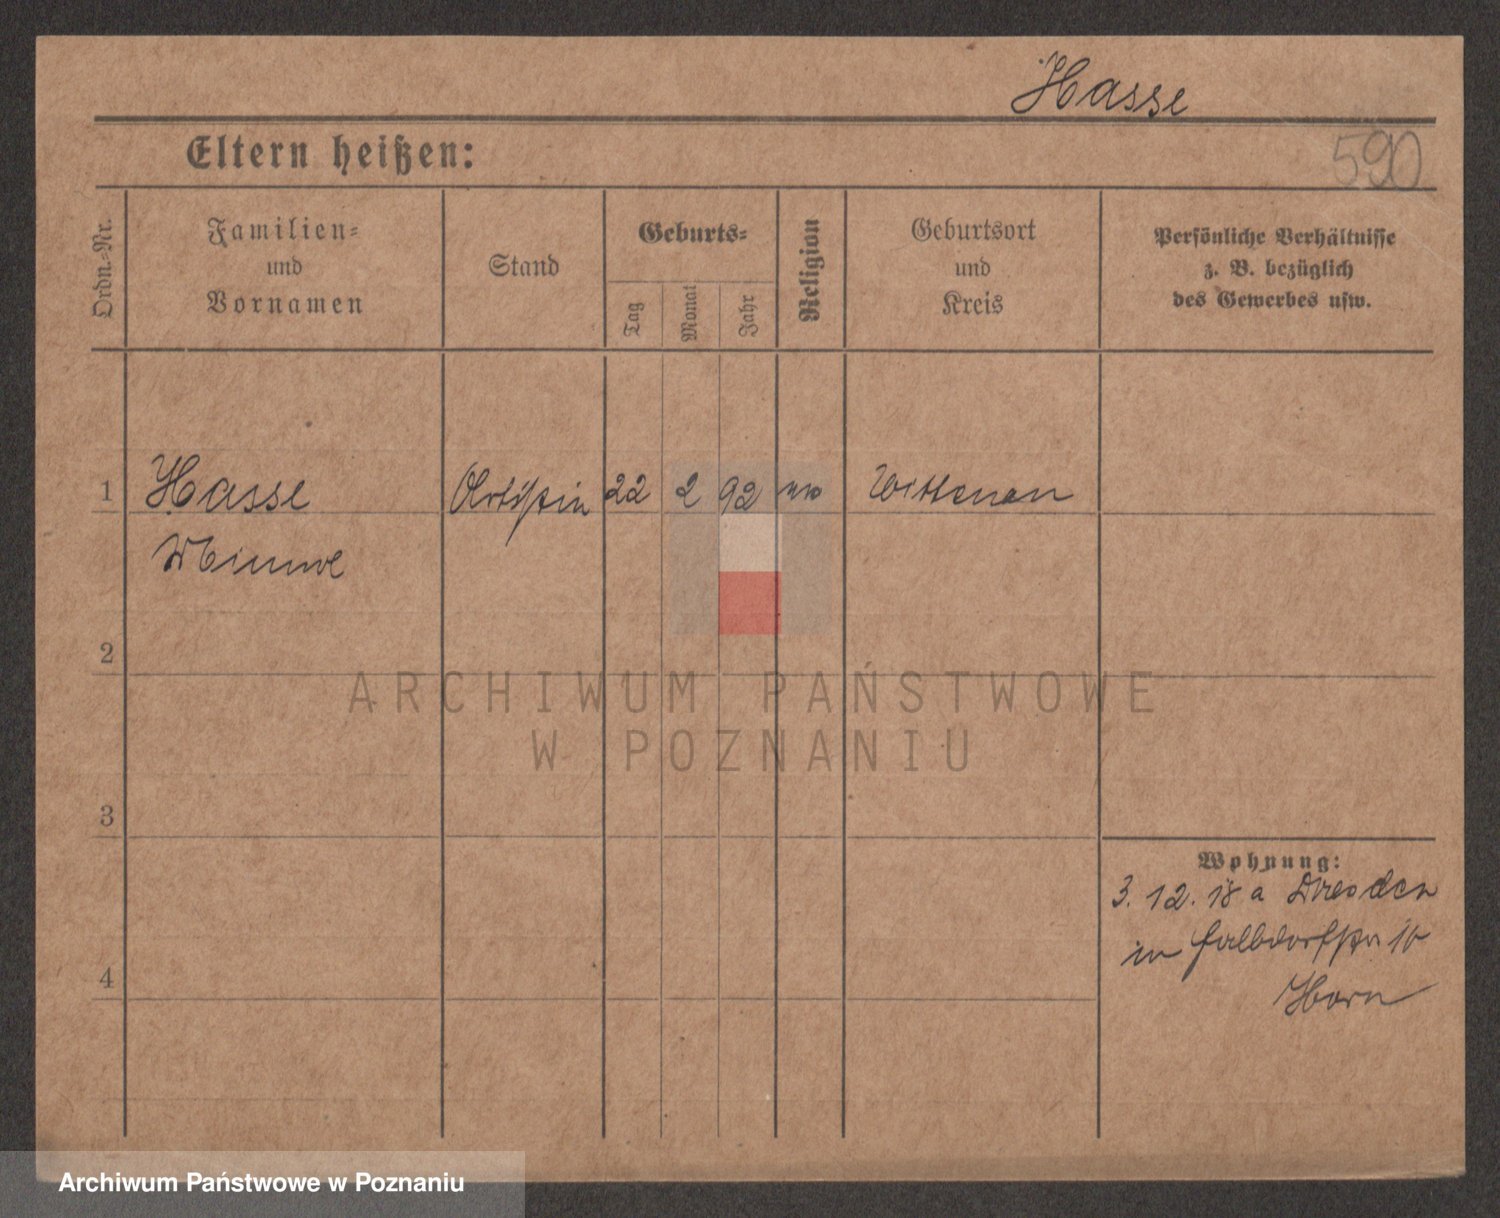 Hasse
590
Eltern heißen:
Ordn.-Nr.
Familien-
und
Vornamen
Stand
Geburts-
Tag
Monat
Jahr
Religion
Geburtsort
und
Kreis
Persönliche Verhältnisse
z. B. bezüglich
des Gewerbes usw.
1
Hasse
Artistin
22
2
92
2
3
4
Wohnung:
3. 12. 18 a Dresden
in
Horn
ARCHIWUM PAŃSTWOWE
W POZNANIU
Archiwum Państwowe w Poznaniu